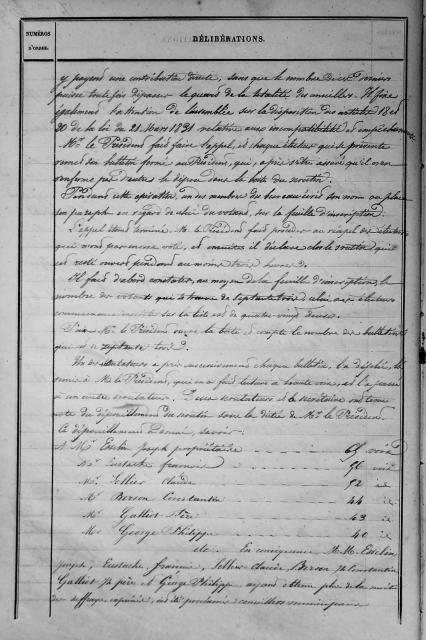 NUMÉROS
D'ORDRE.
DÉLIBÉRATIONS.
y payant une contribution directe, sans que le nombre de ces derniers
puisse toutefois dépasser le quart de la totalité des conseillers. Il fixe
également l'attention de l'assemblée sur la disposition des articles 18 et
20 de la loi du 21 Mars 1831 relative aux incompatibilités et empêchements
Mr. le Président fait faire l'appel, et chaque électeur qui se présente
remet son bulletin fermé au Président, qui, après s'être assuré qu'il n'en
renferme pas d'autre le dépose dans la boîte du scrutin.
Pendant cette opération, un des membres du bureau écrit son nom ou place
son paraphe en regard de celui du votant, sur la feuille d'inscription.
L'appel étant terminé, M. le Président fait procéder au réappel des électeurs
qui n'ont pas encore voté, et ensuite il déclare clos le scrutin qui
est resté ouvert pendant au moins trois heures.
Il fait d'abord constater, au moyen de la feuille d'inscription, le
nombre de votants qui se trouve de septante trois, celui des électeurs
communaux inscrits sur la liste est de quatre-vingt deux.
Mr. le Président ouvre la boîte et compte le nombre des bulletins
qui est septante trois.
Un des scrutateurs a pris successivement chaque bulletin, l'a déplié, l'a
remis à Mr. le Président, qui en a fait lecture à haute voix, et l'a passé
à un autre scrutateur. Deux scrutateurs et le secrétaire ont tenu
note du dépouillement du scrutin sous la dictée de Mr. le Président.
Ce dépouillement a donné, savoir:
A Mr. Joseph propriétaire 65 voix
Mr. Eustache francois 56 voix
Mr. Sellier Claude 52 id.
Mr. Berson Constantin 44 id.
Mr. Galliot Père 43 id.
Mr. George Philippe 40 id.
etc. En conséquence M.M.
Joseph, Eustache, francois, Sellier Claude, Berson Constantin
Galliot père et George Philippe ayant obtenu plus de la moitié
de suffrages exprimés, ont été proclamés conseillers municipaux